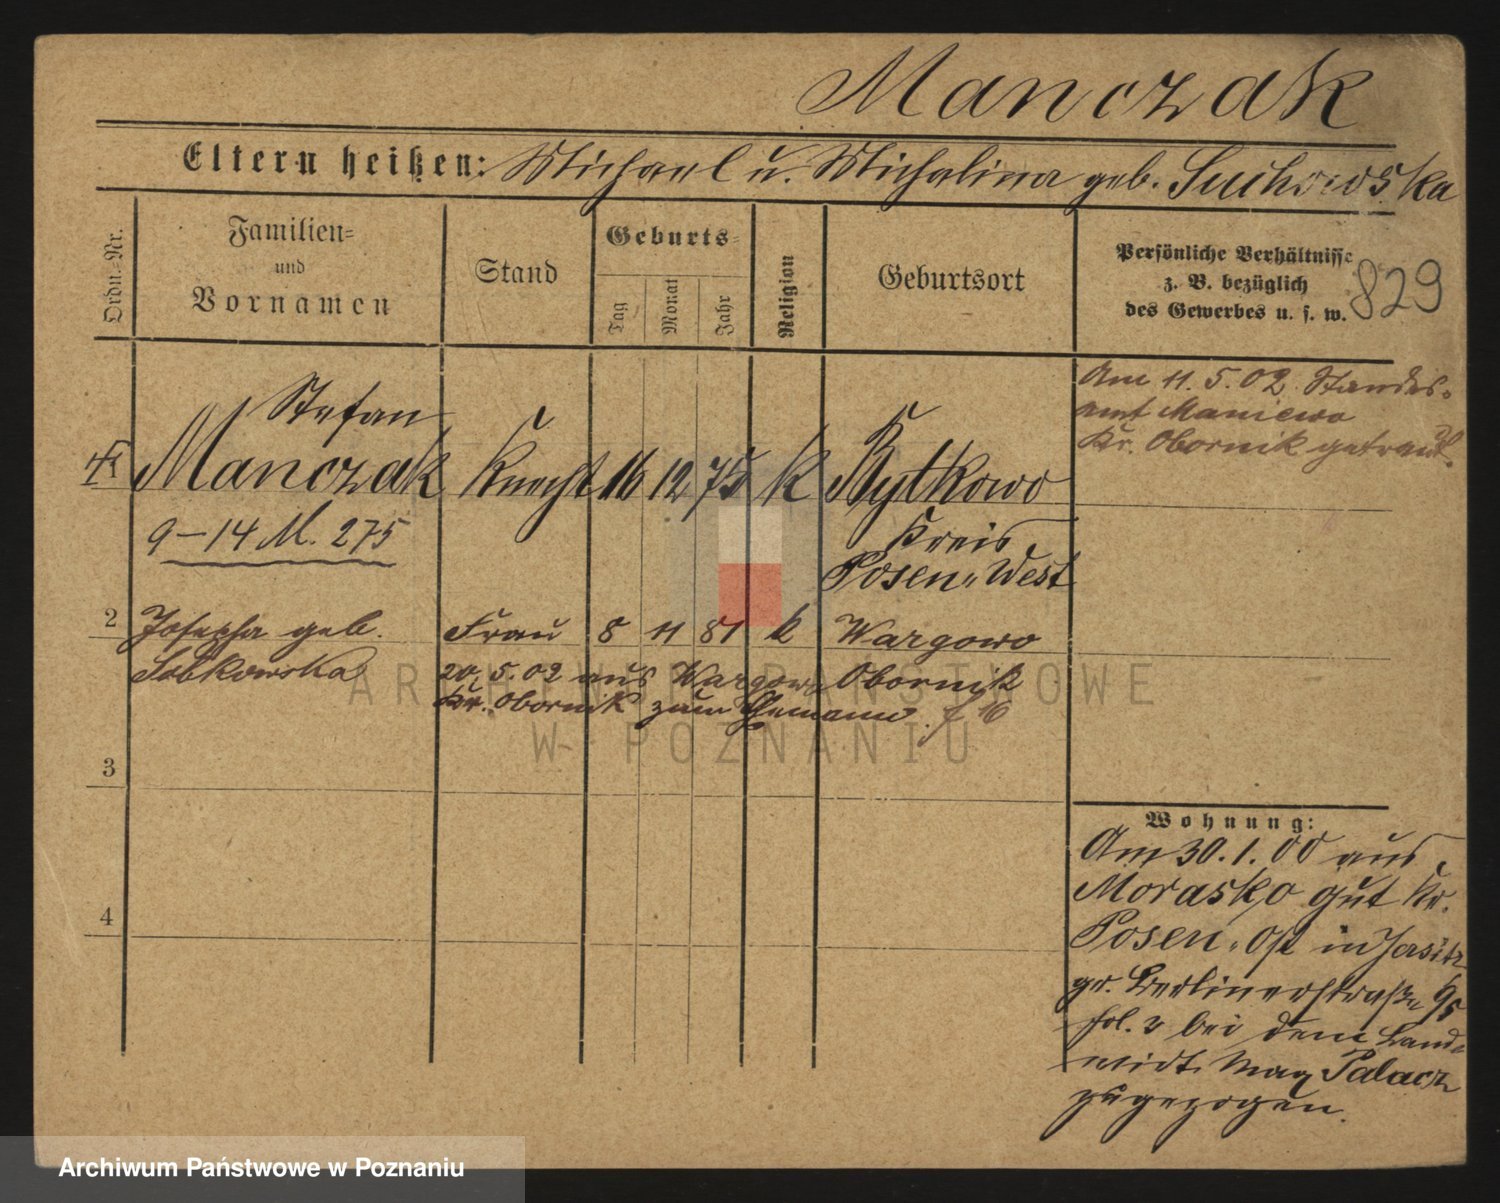 Manczak
Eltern heißen: Michael u. Michalina geb. Suchowska
Ordn.-Nr.
Familien-
und
Vornamen
Stand
Geburts-
Tag
Monat
Jahr
Religion
Geburtsort
Persönliche Verhältnisse
z. B. bezüglich
des Gewerbes u. s. w.
829
Stefan
Manczak Knecht 16 12 75 k Rytkowo
9-14 M. 275
Kreis
Posen-West
Am 11. 5. 02 Standes-
amt Maniewo
Kr. Obornik getraut.
2 Josepha geb. Frau 8 11 81 k Wargowo
Sobkowska
Obornik
20. 5. 02 aus Wargowo
Kr. Obornik zum Ehemann. f 16
3
4
Wohnung:
Am 30. 1. 00 aus
Morasko Gut Kr.
Posen-Ost in Jersitz
gr. Berlinerstraße 95
fol. 2 bei dem Land-
wirt Palacz
zugezogen.
ARCHIWUM PAŃSTWOWE
W POZNANIU
Archiwum Państwowe w Poznaniu